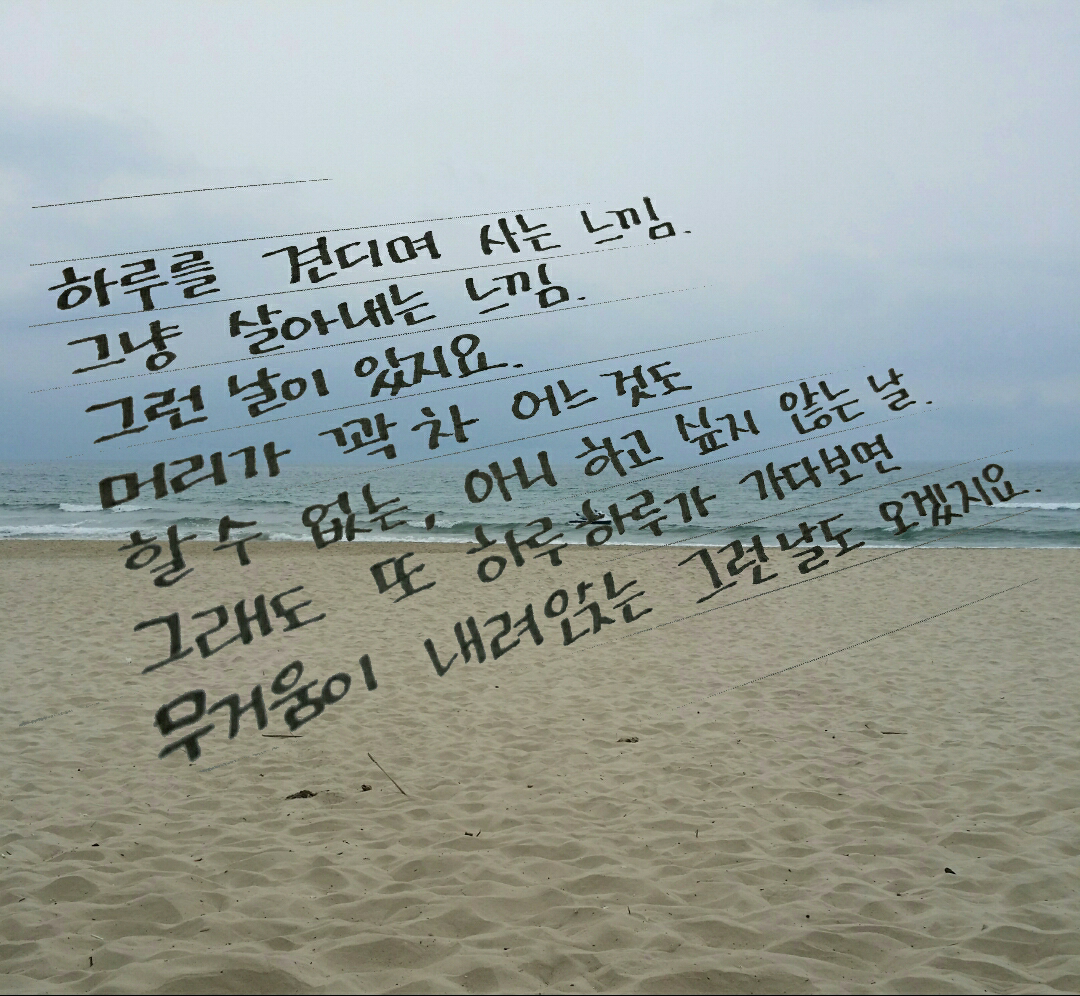 하루를 견디며 사는 느낌.
그냥 살아내는 느낌.
그런 날이 있었지요.
머리가 꽉 차 어느 것도
할 수 없는, 아니 하고 싶지 않는 날.
그래도 또 하루하루가 가다보면
무거움이 내려앉는 그런날도 오겠지요.